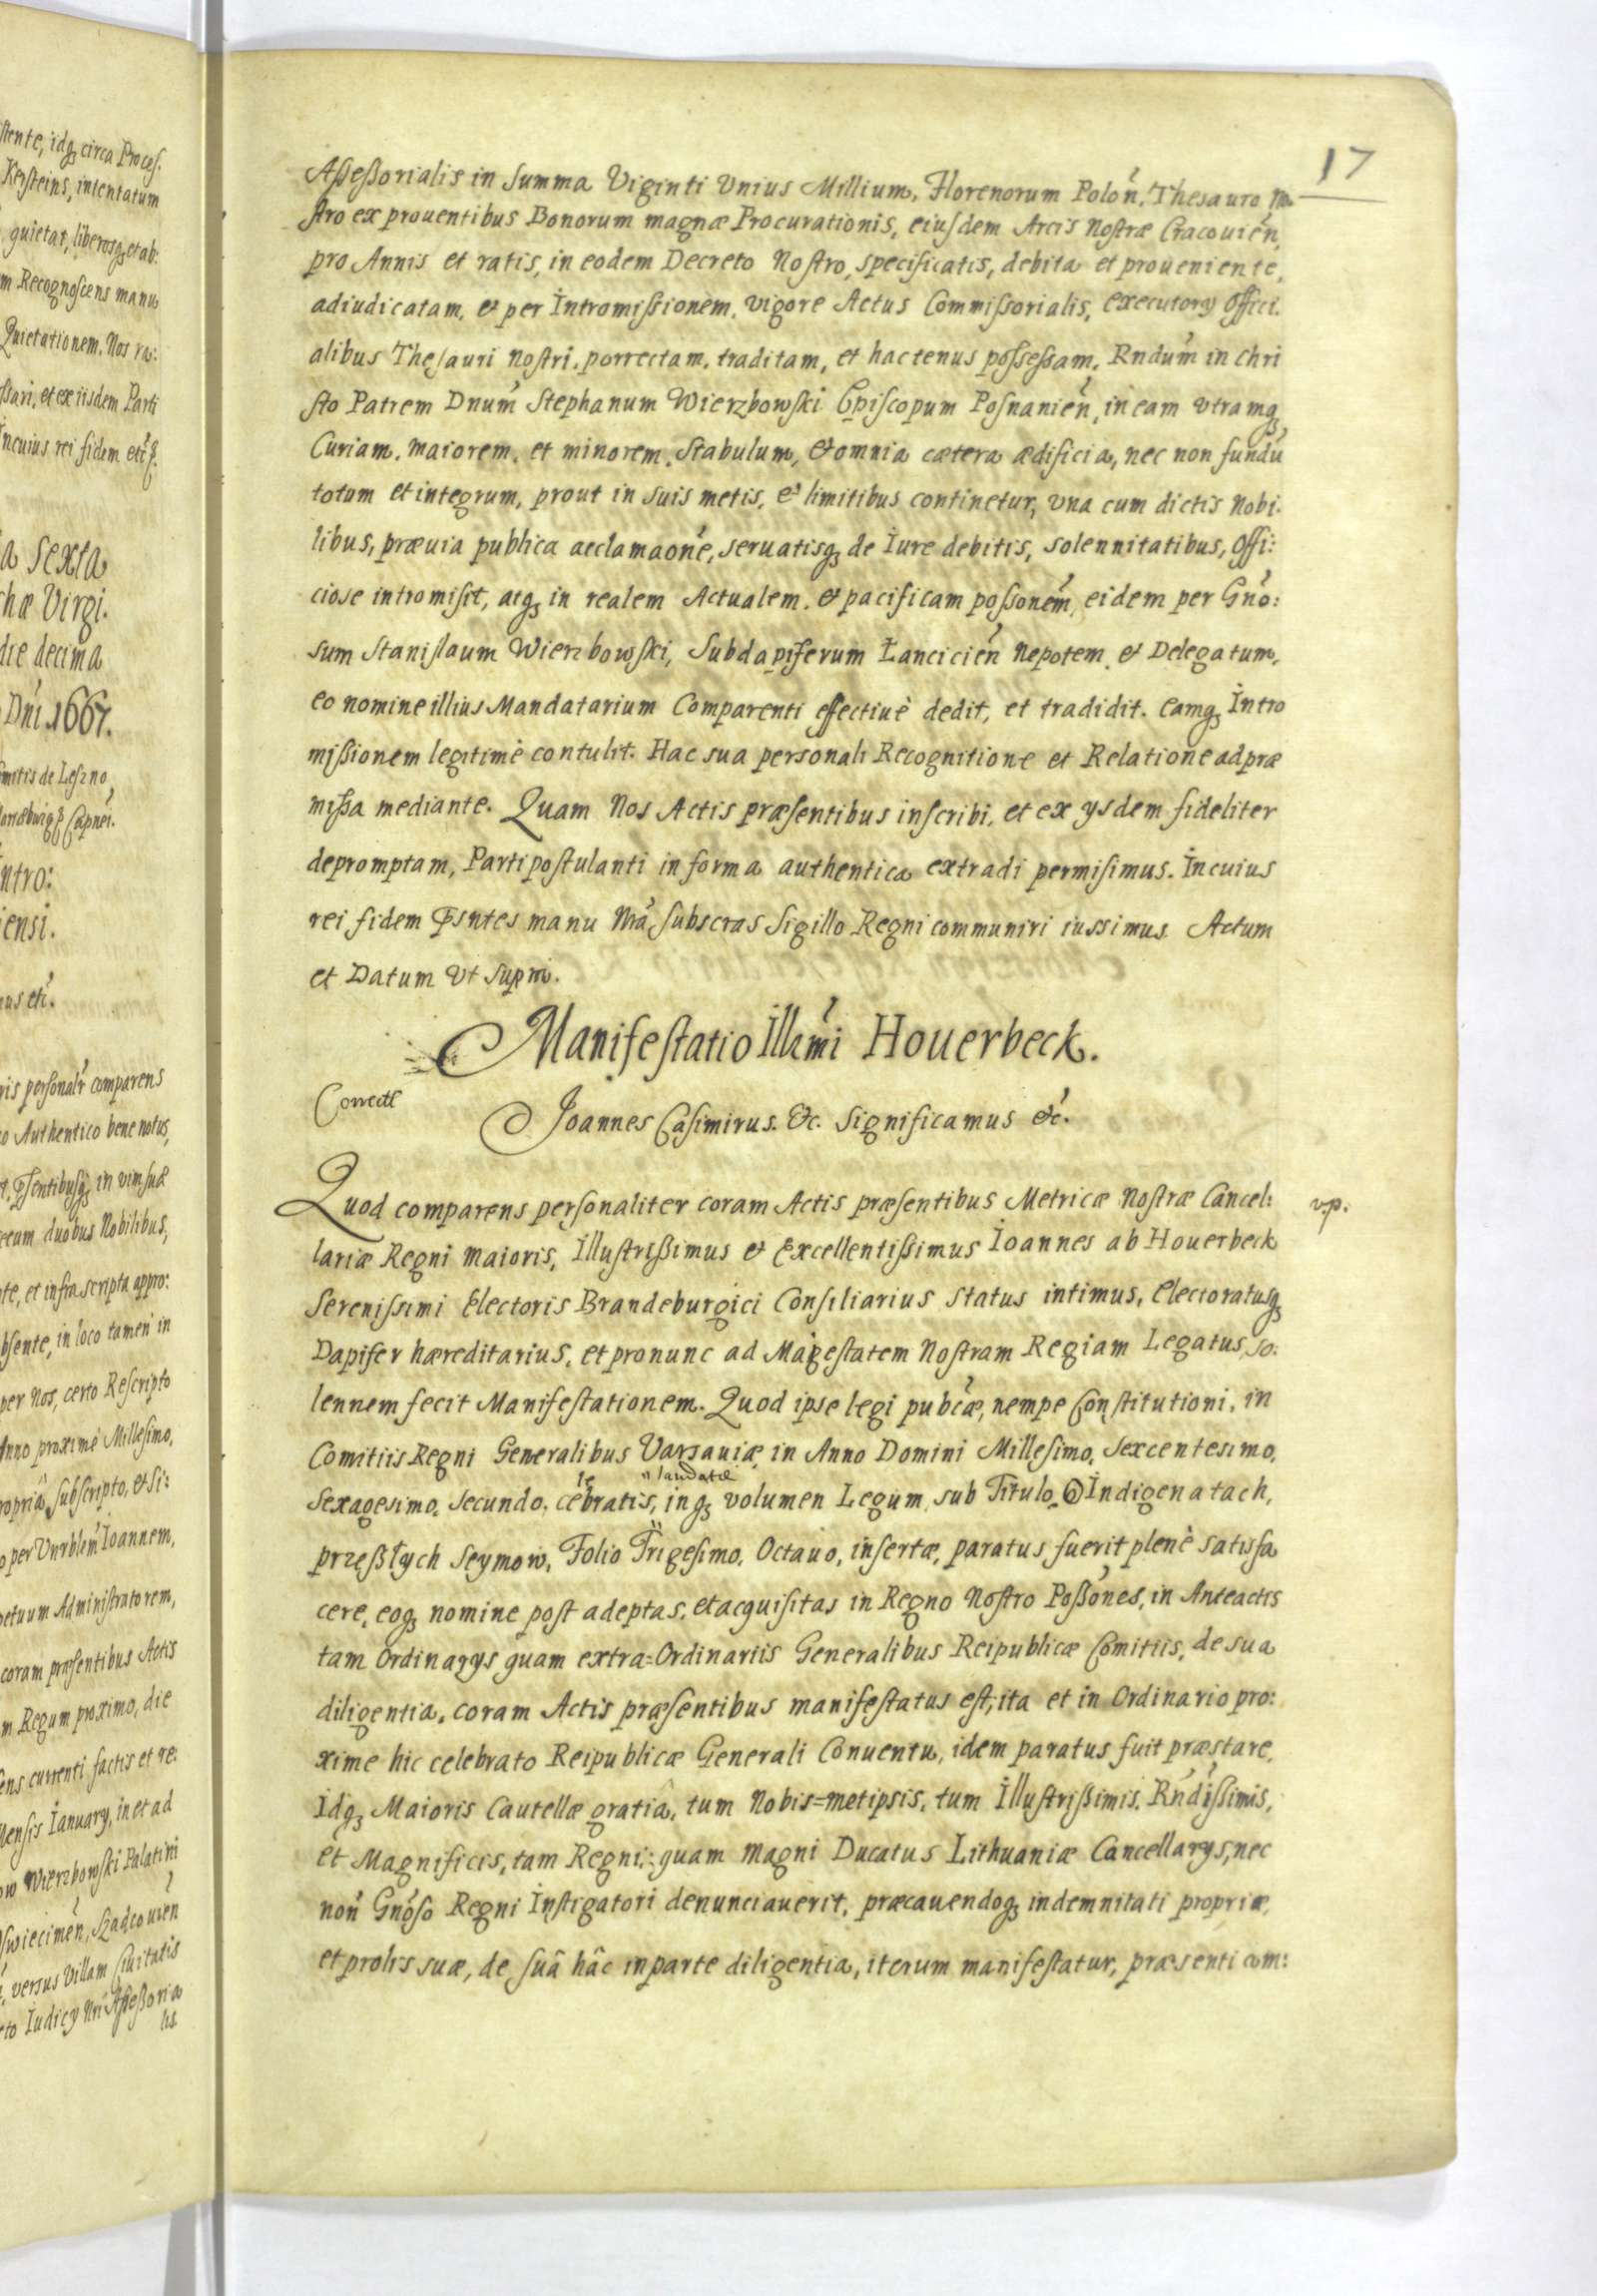 17
Assessorialis in Summa Viginti Unius Millium, Florenorum Polon̄. Thesauro No
stro ex prouentibus Bonorum magnæ Procurationis, eiusdem Arcis Nostræ Cracouien̄,
pro Annis et ratis, in eodem Decreto Nostro, specificatis, debita et proueniente,
adiudicatam, et per Intromissionem, vigore Actus Commissorialis, executorij Offici.
alibus Thesauri nostri, porrectam, traditam, et hactenus possessam. Rndum̄ in Chri
sto Patrem Dnum̄ Stephanum Wierzbowski Episcopum Posnanien̄, in eam utramq3
Curiam, maiorem, et minorem, Stabulum, et omnia cætera ædificia, nec non fundū
totum et integrum, prout in suis metis, et limitibus continetur, una cum dictis Nobi.
libus, præuia publica acclamaōne, seruatisq3 de Iure debitis, solennitatibus, Offi:
ciose intromisit, atq3 in realem Actualem, et pacificam possonem̄, eidem per Gnō:
sum Stanislaum Wierzbowski, Subdapiferum Łancicien̄ Nepotem et Delegatum,
eo nomine illius Mandatarium Comparenti effectiuè dedit, et tradidit. eamq3 Intro
missionem legitimè contulit. Hac sua personali Recognitione et Relatione ad præ
missa mediante. Quam Nos Actis præsentibus inscribi, et ex ijsdem fideliter
depromptam, Parti postulanti in forma authentica extradi permisimus. In cuius
rei fidem Psntes manu Nrā subscras Sigillo Regni communiri iussimus. Actum
et Datum Ut supra.
Manifestatio Illr̄mi Houerbeck.
Correcte
Joannes Casimirus. Etc. Significamus etc̄.
Quod comparens personaliter coram Actis præsentibus Metricæ Nostræ Cancel: v.p.
lariæ Regni maioris, Illustrissimus et Excellentissimus Ioannes ab Houerbeck
Serenissimi Electoris Brandeburgici Consiliarius Status intimus, Electoratusq3
Dapifer hæreditarius, et pronunc ad Magestatem Nostram Regiam Legatus, so:
lennem fecit Manifestationem. Quod ipse legi pubcǣ, nempe Constitutioni, in
Comitiis Regni Generalibus Varsauiæ, in Anno Domini Millesimo, Sexcentesimo,
le " laudatæ
Sexagesimo, Secundo, cebratis, inq3 volumen Legum, sub Titulo, O Indigenatach,
przeßłych Seymow, Folio Trigesimo, Octauo, insertæ, paratus fuerit plenè satisfa
cere, eoq3 nomine post adeptas, et acquisitas in Regno Nostro Poßōnes, in Anteactis
tam Ordinarijs quam extra=Ordinariis Generalibus Reipublicæ Comitiis, de sua
diligentia, coram Actis præsentibus manifestatus est, ita et in Ordinario pro:
xime hic celebrato Reipublicæ Generali Conuentu, idem paratus fuit præstare,
Idq3 Maioris Cautellæ gratiâ, tum Nobis=metipsis, tum Illustrissimis, Rn̄dissimis,
et Magnificis, tam Regni: quam Magni Ducatus Lithuaniæ Cancellarijs, nec
non̄ Gnōso Regni Instigatori denunciauerit, præcauendoq3 indemnitati propriæ,
et prolis suæ, de suâ hâc in parte diligentia, iterum manifestatur, præsenti com:
stente, idq3 circa Proces.
intentatum
quietat, liberosq3 et ab:
m Recognoscens manu
Quietationem. Nos ra:
et ex iisdem Parti
In cuius rei fidem etc̄
a Sexta
Virgi.
die decima
Dn̄i 1667.
de Leszno,
ntro:
iensi.
personalr̄ comparens
Authentico bene notus,
in vim suæ
duobus Nobilibus,
et infra scripta appro:
in loco tamen in
per Nos, certo Rescripto
Anno proximè Millesimo,
subscripto, et Si:
per Vnrblem̄ Ioannem,
Administratorem,
coram præsentibus Actis
Regum proximo, die
currenti factis et re:
Mensis Ianuarij, in et ad
Wierzbowski Palatini
Szadcouien̄
versus Villam Ciuitatis
Iudicij Nri Assessoria
lis